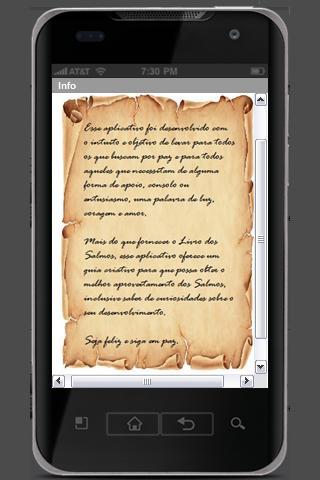 AT&T 7:30 PM
Info
Esse aplicativo foi desenvolvido com
o intuito e objetivo de levar para todos
os que buscam por paz e para todos
aqueles que necessitam de alguma
forma de apoio, consolo ou
entusiasmo, uma palavra de luz,
coragem e amor.
Mais do que fornecer o Livro dos
Salmos, esse aplicativo oferece um
guia criativo para que possa obter o
melhor aproveitamento dos Salmos,
inclusive saber de curiosidades sobre o
seu desenvolvimento.
Seja feliz e siga em paz.